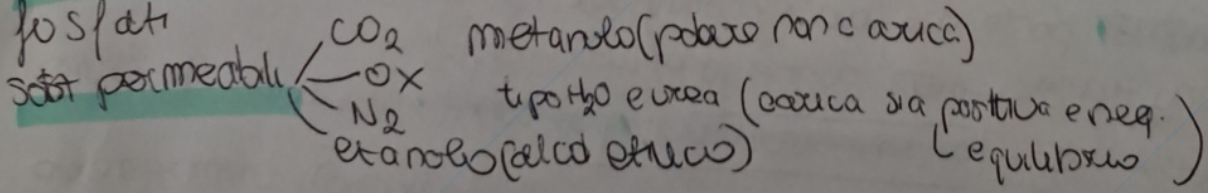 fosfati
sost permeabili CO2 metanolo (polare non carica)
OX
N2 tipo H2O e urea (carica sia positiva e neg.
etanolo (alcol etilico) equilibrio)